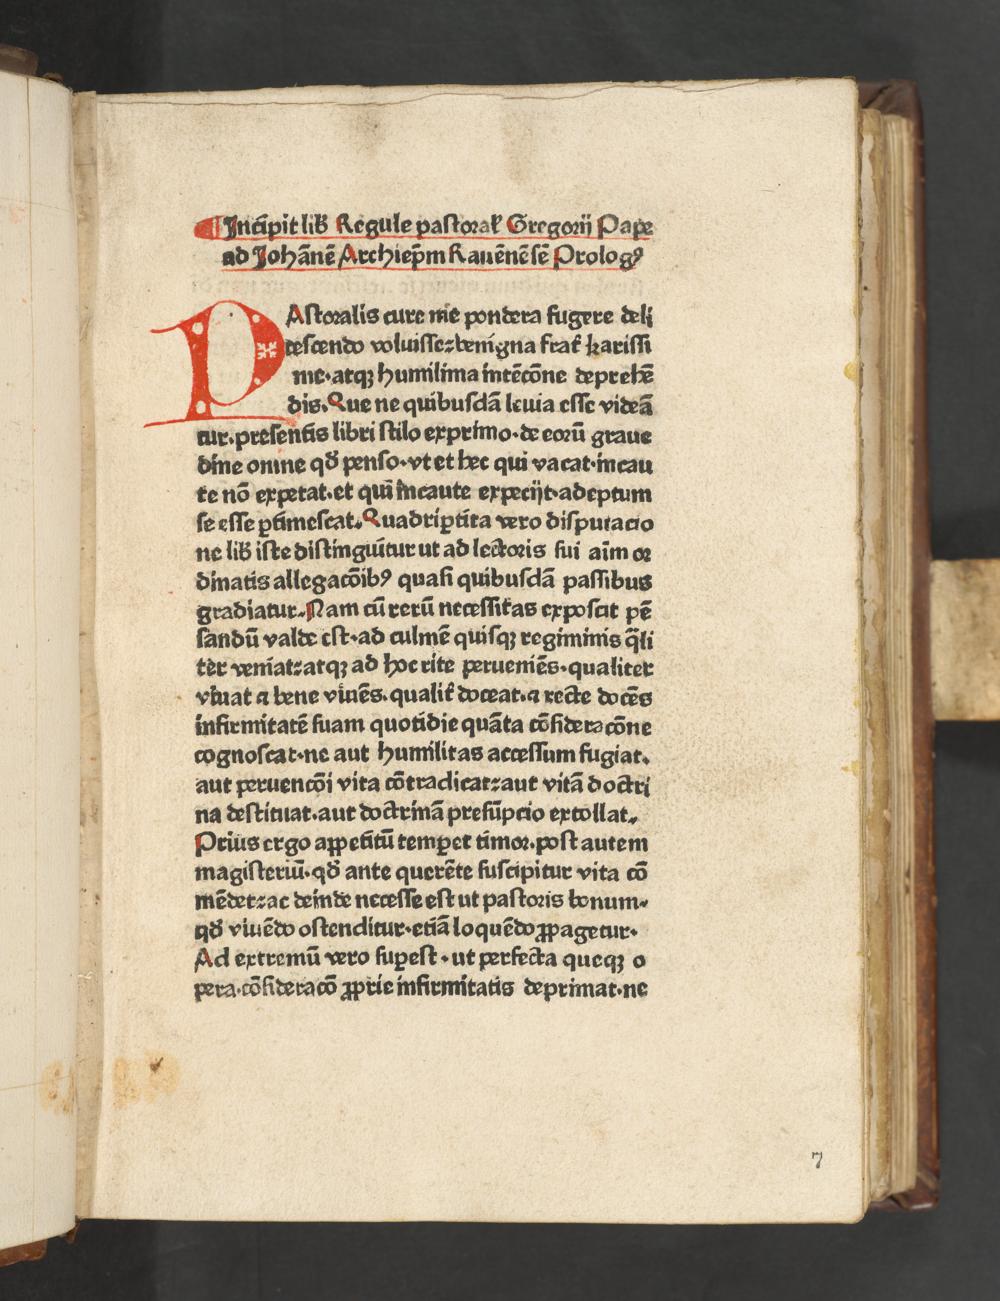 ¶Incipit lib̄ Regule pastoral̄ Gregorij Pape
ad Johānē Archiep̄m Rauēnēsē Prologꝰ
PAstoralis cure me pondera fugere deli
tescendo voluisse:benigna frat̄ karissi
me·atqꝫ humilima intēcōne deprehē
dis.Que ne quibusdā leuia esse videā
tur·presentis libri stilo exprimo·de eorū graue
dine omne qd̄ penso·vt et hec qui vacat·incau
te nō expetat·et qui incaute expecijt·adeptum
se esse ꝑtimescat.Quadriꝑtita vero disputacio
ne lib̄ iste distinguit̄ur ut ad lectoris sui aīm or
dinatis allegacōibꝰ quasi quibusdā passibus
gradiatur.Nam cū rerū necessitas exposcit pē
sandū valde est·ad culmē quisqꝫ regiminis q̄li
ter veniat:atqꝫ ad hoc rite perueniēs·qualiter
viuat ⁊ bene viuēs·qualit̄ doceat·⁊ recte docēs
infirmitatē suam quotidie quāta cōsideracōne
cognoscat·ne aut humilitas accessum fugiat.
aut peruencōi vita cōtradicat:aut vitā doctri
na destituat·aut doctrinā presūpcio extollat.
Prius ergo appetitū temꝑet timor·post autem
magisteriū·qd̄ ante querēte suscipitur vita cō
mēdet:ac deinde necesse est ut pastoris bonum·
qd̄ viuēdo ostenditur·etiā loquēdo ꝓpagetur·
Ad extremū vero suꝑest·ut perfecta queqꝫ o
pera·cōsideracō ꝓprie infirmitatis deprimat·ne
7